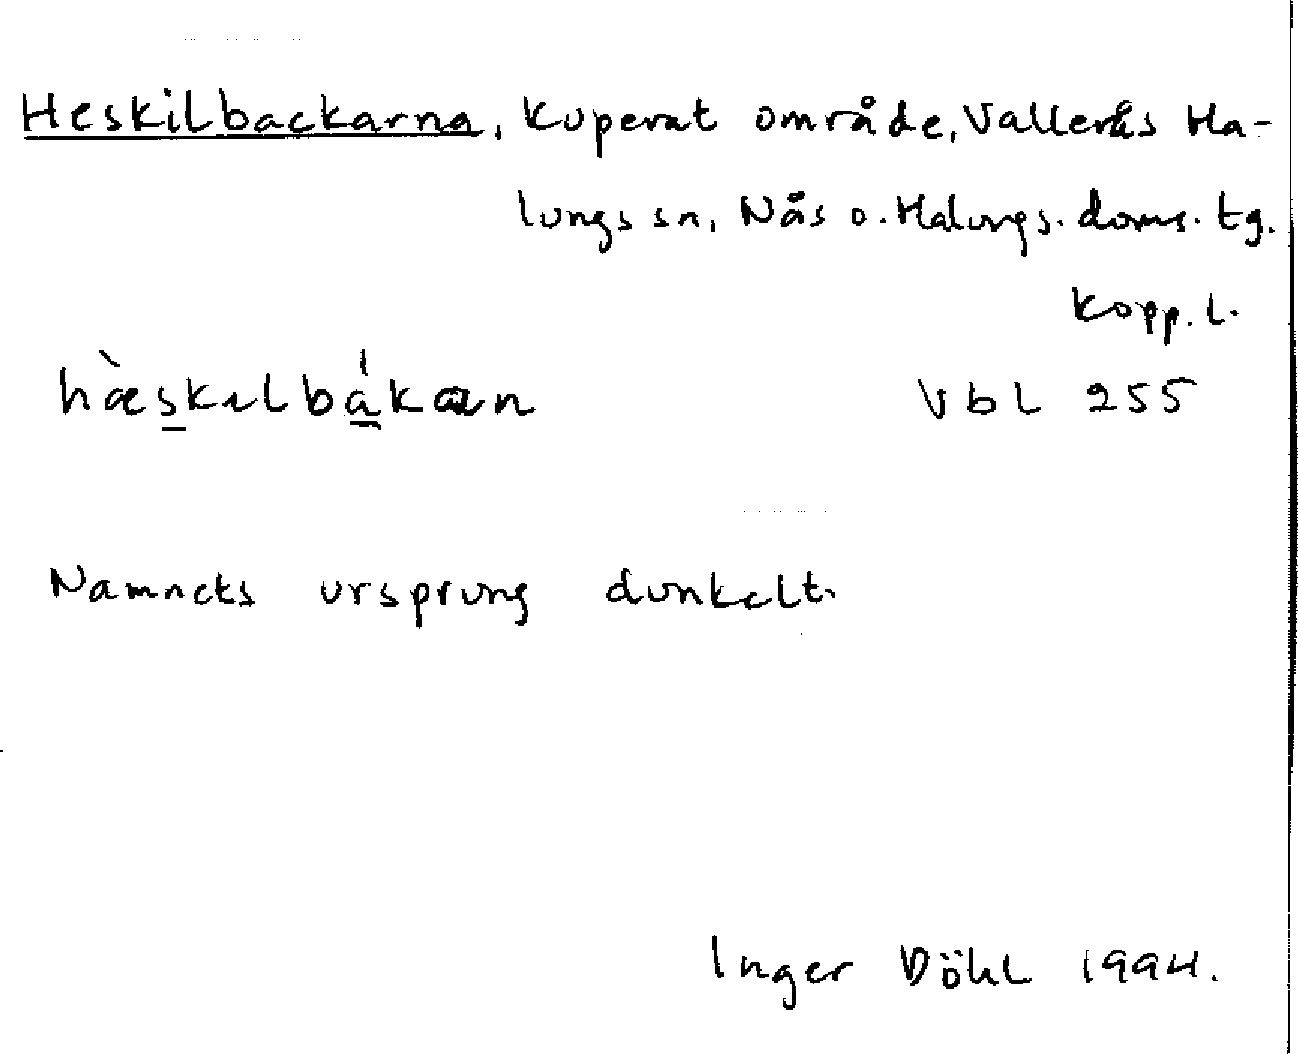 Heskilbackarna, kuperat område, Vallerås Ha-
lungs sn, Nås o. Malungs. doms. tg.
Kopp. l.
hæ̀skɩlbákan Vbl 255
Namnets ursprung dunkelt.
Inger Döhl 1994.